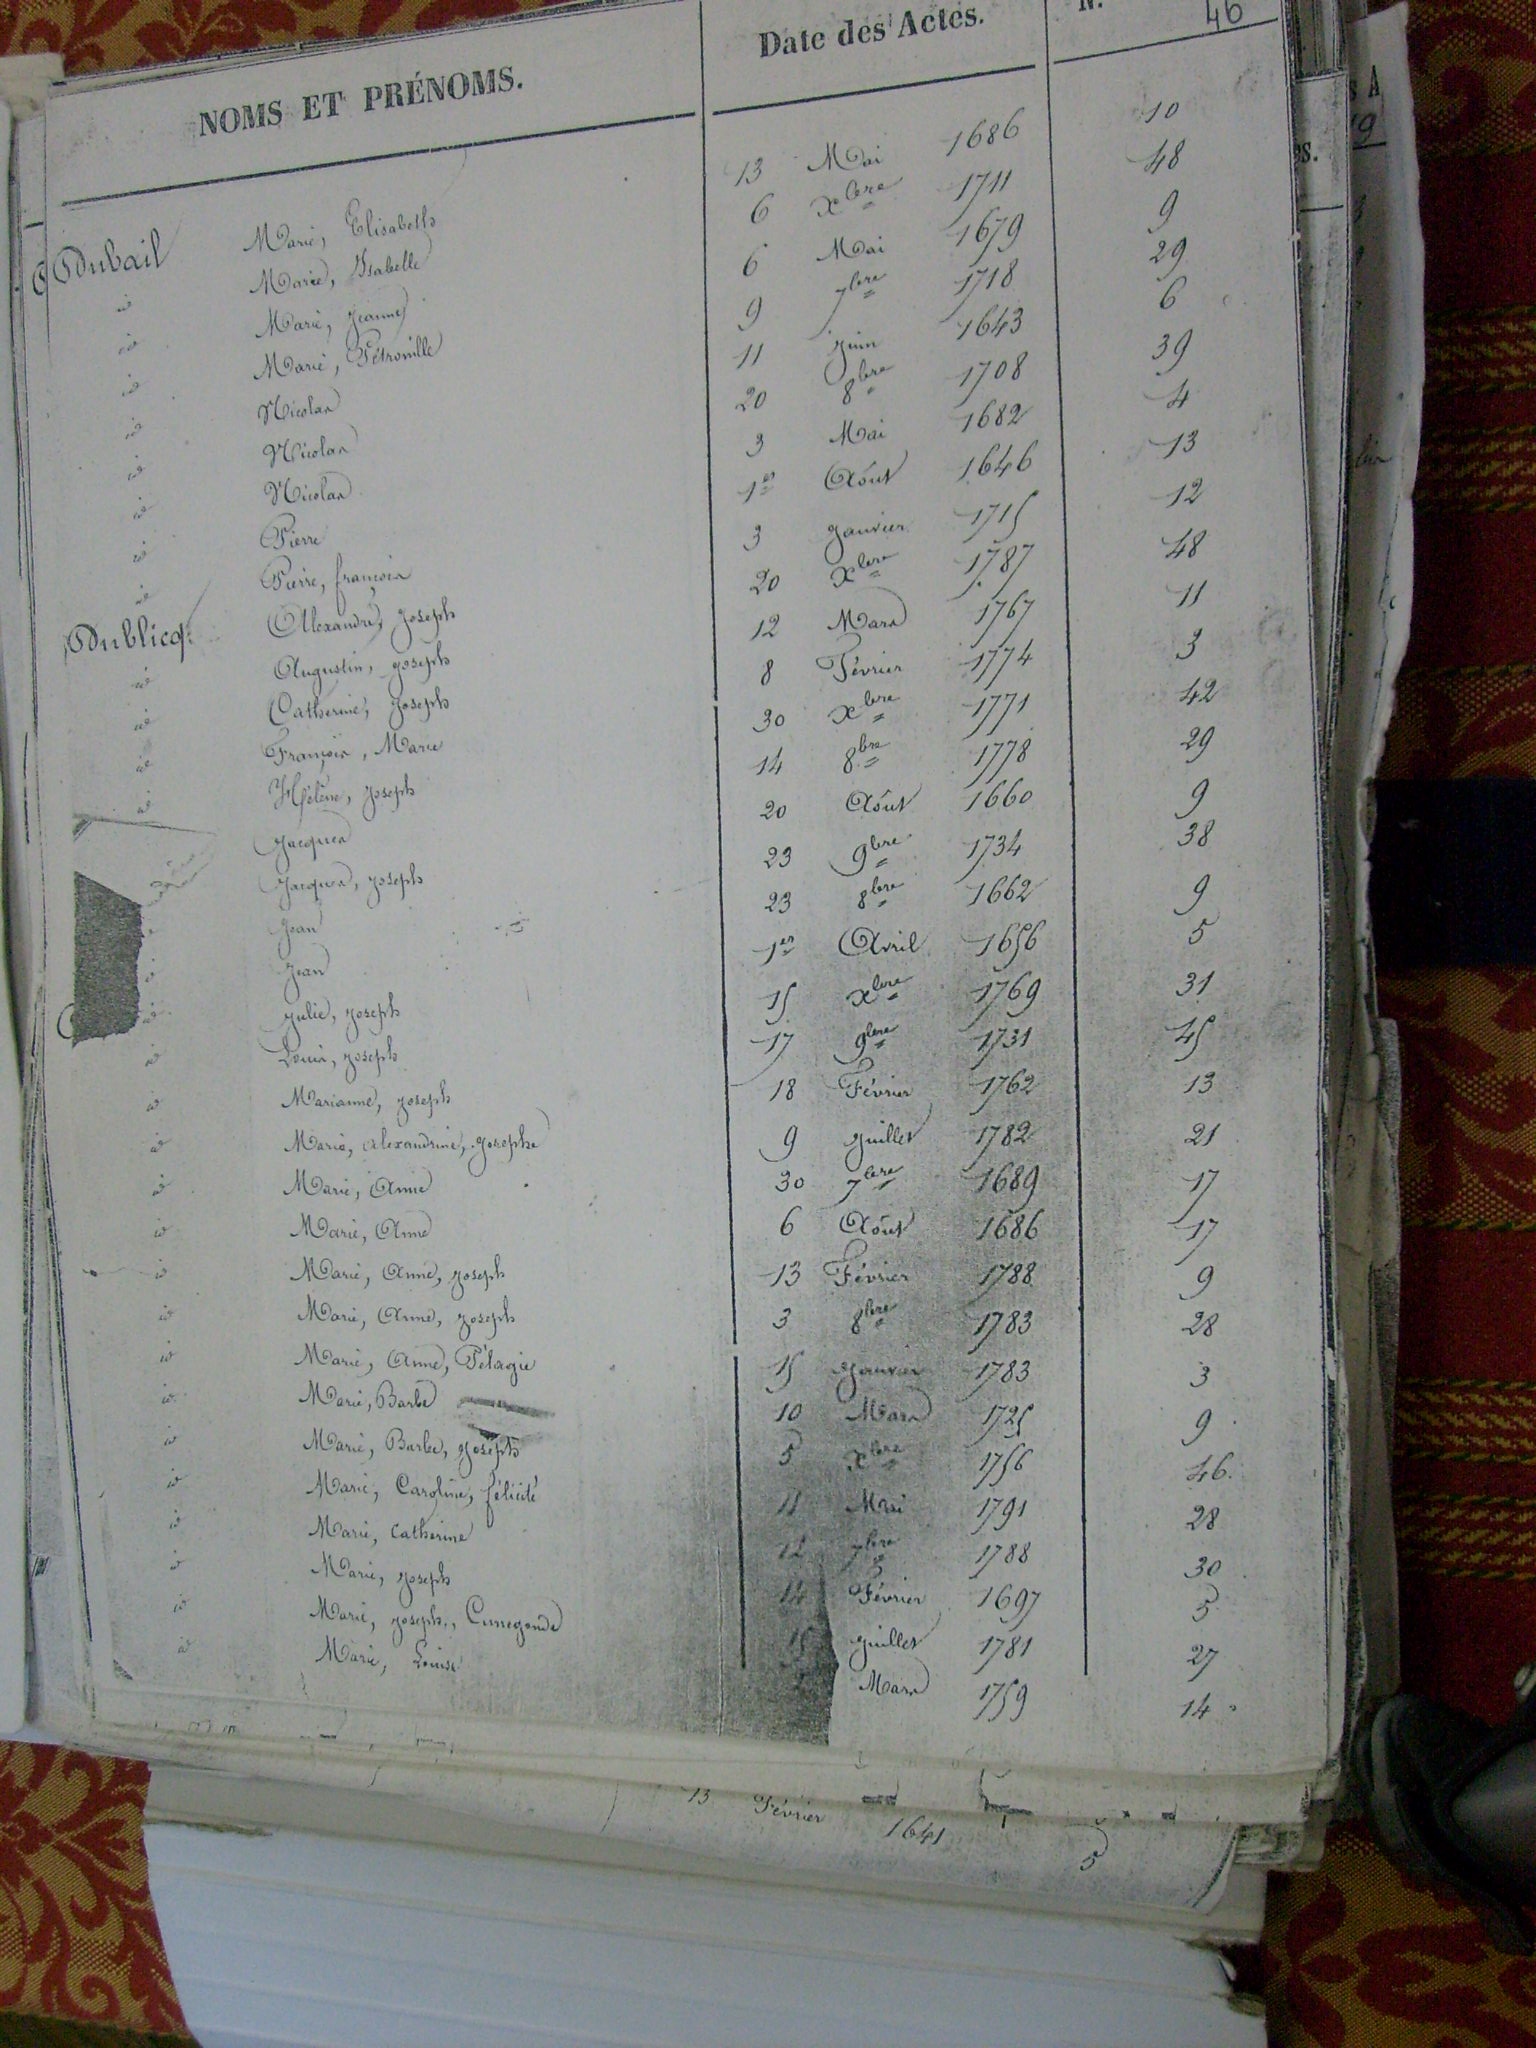 NOMS ET PRÉNOMS. Date des Actes. N. 46
Dubail Marie, Elisabeth 13 Mai 1686 10
id Marie, Isabelle 6 xbre 1711 48
id Marie, Jeanne 6 Mai 1679 9
id Marie, Pétronille 9 7bre 1718 29
id Nicolas 11 juin 1643 6
id Nicolas 20 8bre 1708 39
id Nicolas 3 Mai 1682 4
id Pierre 1er Août 1646 13
id Pierre, françois 3 janvier 1715 12
Dublicq. Alexandre, Joseph 20 xbre 1787 48
id Augustin, joseph 12 Mars 1767 11
id Catherine, Joseph 8 Février 1774 3
id François, Marie 30 xbre 1771 42
id Hélène, joseph 14 8bre 1778 29
Jacques 20 Août 1660 9
Jacques, joseph 23 9bre 1734 38
Jean 23 8bre 1662 9
id Jean 1er Avril 1656 5
id Julie, joseph 15 xbre 1769 31
id Louis, joseph 17 9bre 1731 45
id Marianne, joseph 18 Février 1762 13
id Marie, alexandrine, josephe 9 juillet 1782 21
id Marie, Anne 30 7bre 1689 17
id Marie, Anne 6 Août 1686 17
id Marie, Anne, joseph 13 Février 1788 9
id Marie, Anne, joseph 3 8bre 1783 28
id Marie, Anne, Pélagie 15 janvier 1783 3
id Marie, Barbe 10 Mars 1725 9
id Marie, Barbe, joseph 5 xbre 1756 46
id Marie, Caroline, félicité 11 Mai 1791 28
id Marie, Catherine 12 7bre 1788 30
id Marie, joseph 14 Février 1697 5
id Marie, joseph, Cunegonde 15 juillet 1781 27
id Marie, Louise Mars 1759 14
13 Février 1641 5